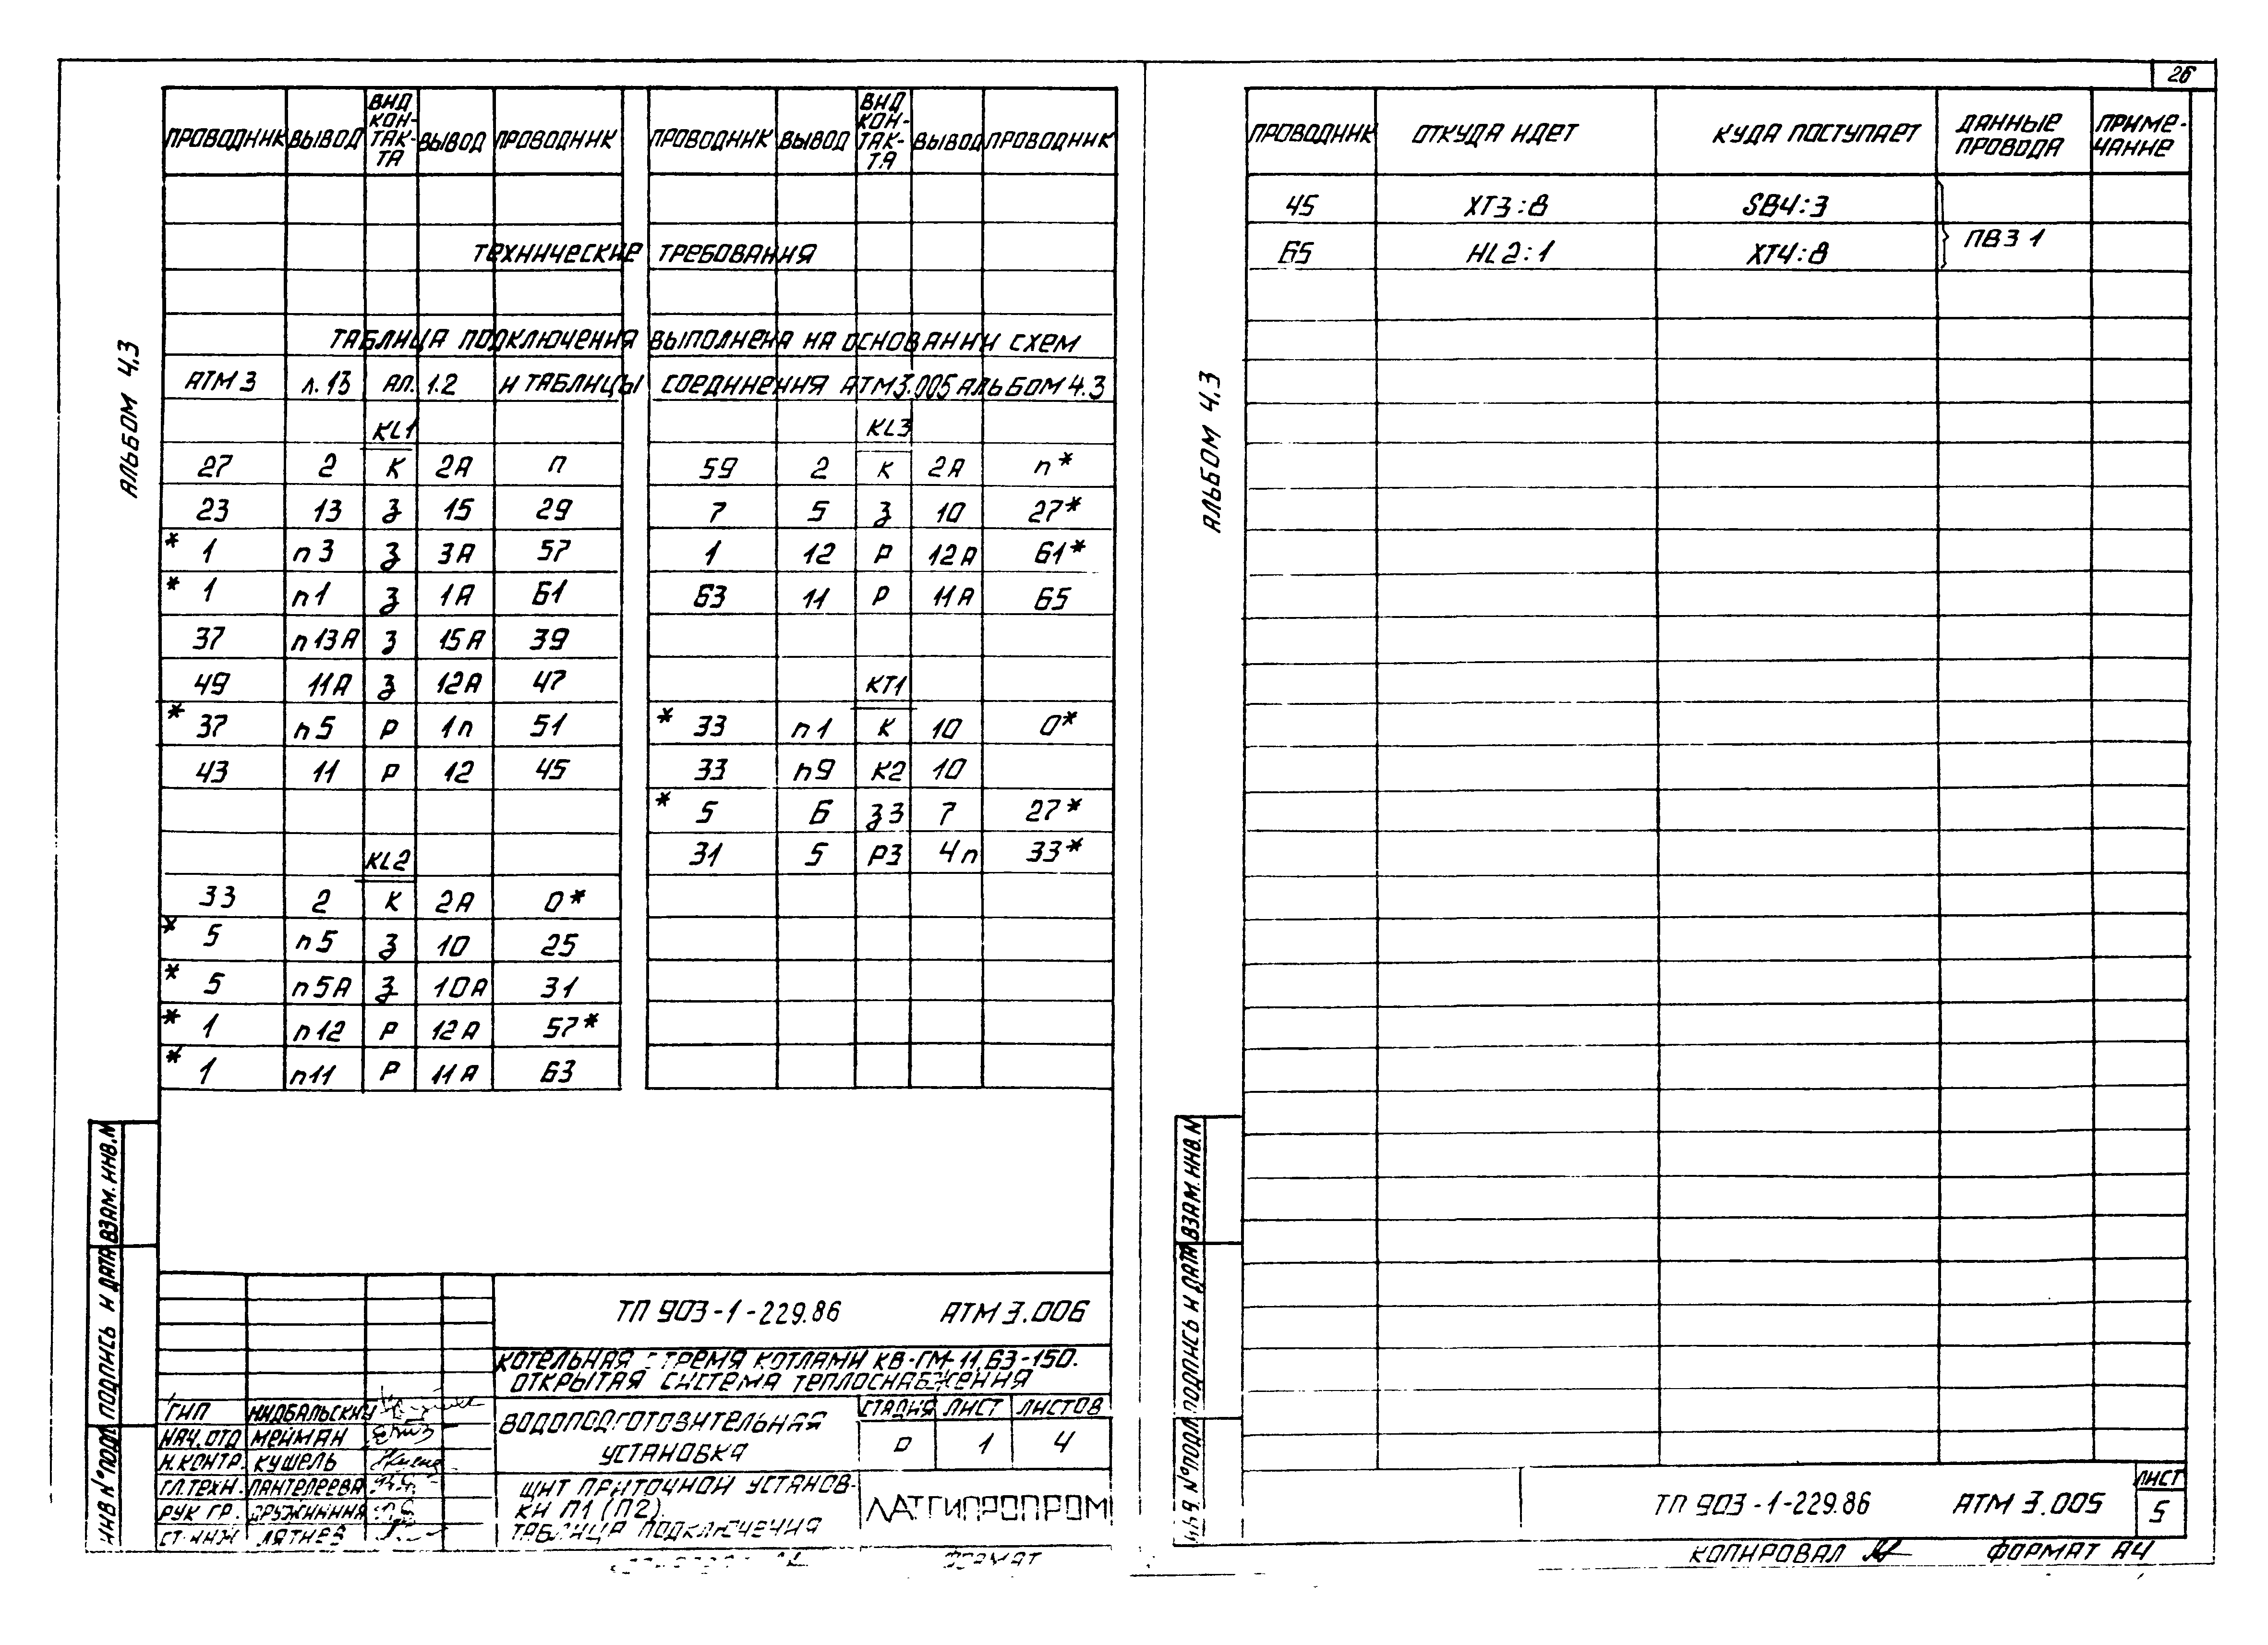 26
АЛЬБОМ 4,3
ПРОВОДНИК ВЫВОД ВИД КОН-ТАК-ТА ВЫВОД ПРОВОДНИК ПРОВОДНИК ВЫВОД ВИД КОН-ТАК-ТА ВЫВОД ПРОВОДНИК
ТЕХНИЧЕСКИЕ ТРЕБОВАНИЯ
ТАБЛИЦА ПОДКЛЮЧЕНИЯ ВЫПОЛНЕНА НА ОСНОВАНИИ СХЕМ
АТМ3 л.13 АЛ. 1.2 И ТАБЛИЦЫ СОЕДИНЕНИЯ АТМ3.005 АЛЬБОМ 4.3
KL1 KL3
27 2 К 2А П 59 2 К 2А П*
23 13 З 15 29 7 5 З 10 27*
* 1 П3 З 3А 57 1 12 Р 12А 61*
* 1 П1 З 1А 61 63 11 Р 11А 65
37 П13А З 15А 39
49 11А З 12А 47 KT1
* 37 П5 Р 1П 51 * 33 П1 К 10 0*
43 11 Р 12 45 33 П9 К2 10
* 5 6 З3 7 27*
KL2 31 5 Р3 4П 33*
33 2 К 2А 0*
* 5 П5 З 10 25
* 5 П5А З 10А 31
* 1 П12 Р 12А 57*
* 1 П11 Р 11А 63
ВЗАМ. ИНВ. №
ПОДПИСЬ И ДАТА
ИНВ №ПОДЛ
ТП 903-1-229.86 АТМ 3.006
КОТЕЛЬНАЯ С ТРЕМЯ КОТЛАМИ КВ-ГМ-11,63-150.
ОТКРЫТАЯ СИСТЕМА ТЕПЛОСНАБЖЕНИЯ
ГИП НИДБАЛЬСКИЙ
НАЧ. ОТД МЕЙМАН
Н.КОНТР. КУШЕЛЬ
ГЛ.ТЕХН. ПАНТЕЛЕЕВА
РУК ГР. ДРУЖИНИНА
СТ. ИНЖ ЛЯТИЕВ
ВОДОПОДГОТОВИТЕЛЬНАЯ
УСТАНОВКА
СТАДИЯ ЛИСТ ЛИСТОВ
Р 1 4
ЩИТ ПРИТОЧНОЙ УСТАНОВ-
КИ П1 (П2).
ТАБЛИЦА ПОДКЛЮЧЕНИЯ
ЛАТГИПРОПРОМ
ФОРМАТ
АЛЬБОМ 4,3
ПРОВОДНИК ОТКУДА ИДЕТ КУДА ПОСТУПАЕТ ДАННЫЕ ПРОВОДА ПРИМЕ-ЧАНИЕ
45 XT3:8 SB4:3
ПВ3 1
65 HL2:1 XT4:8
ВЗАМ. ИНВ. №
ПОДПИСЬ И ДАТА
№ПОДЛ
ТП 903-1-229.86 АТМ 3.005
ЛИСТ
5
КОПИРОВАЛ ФОРМАТ А4